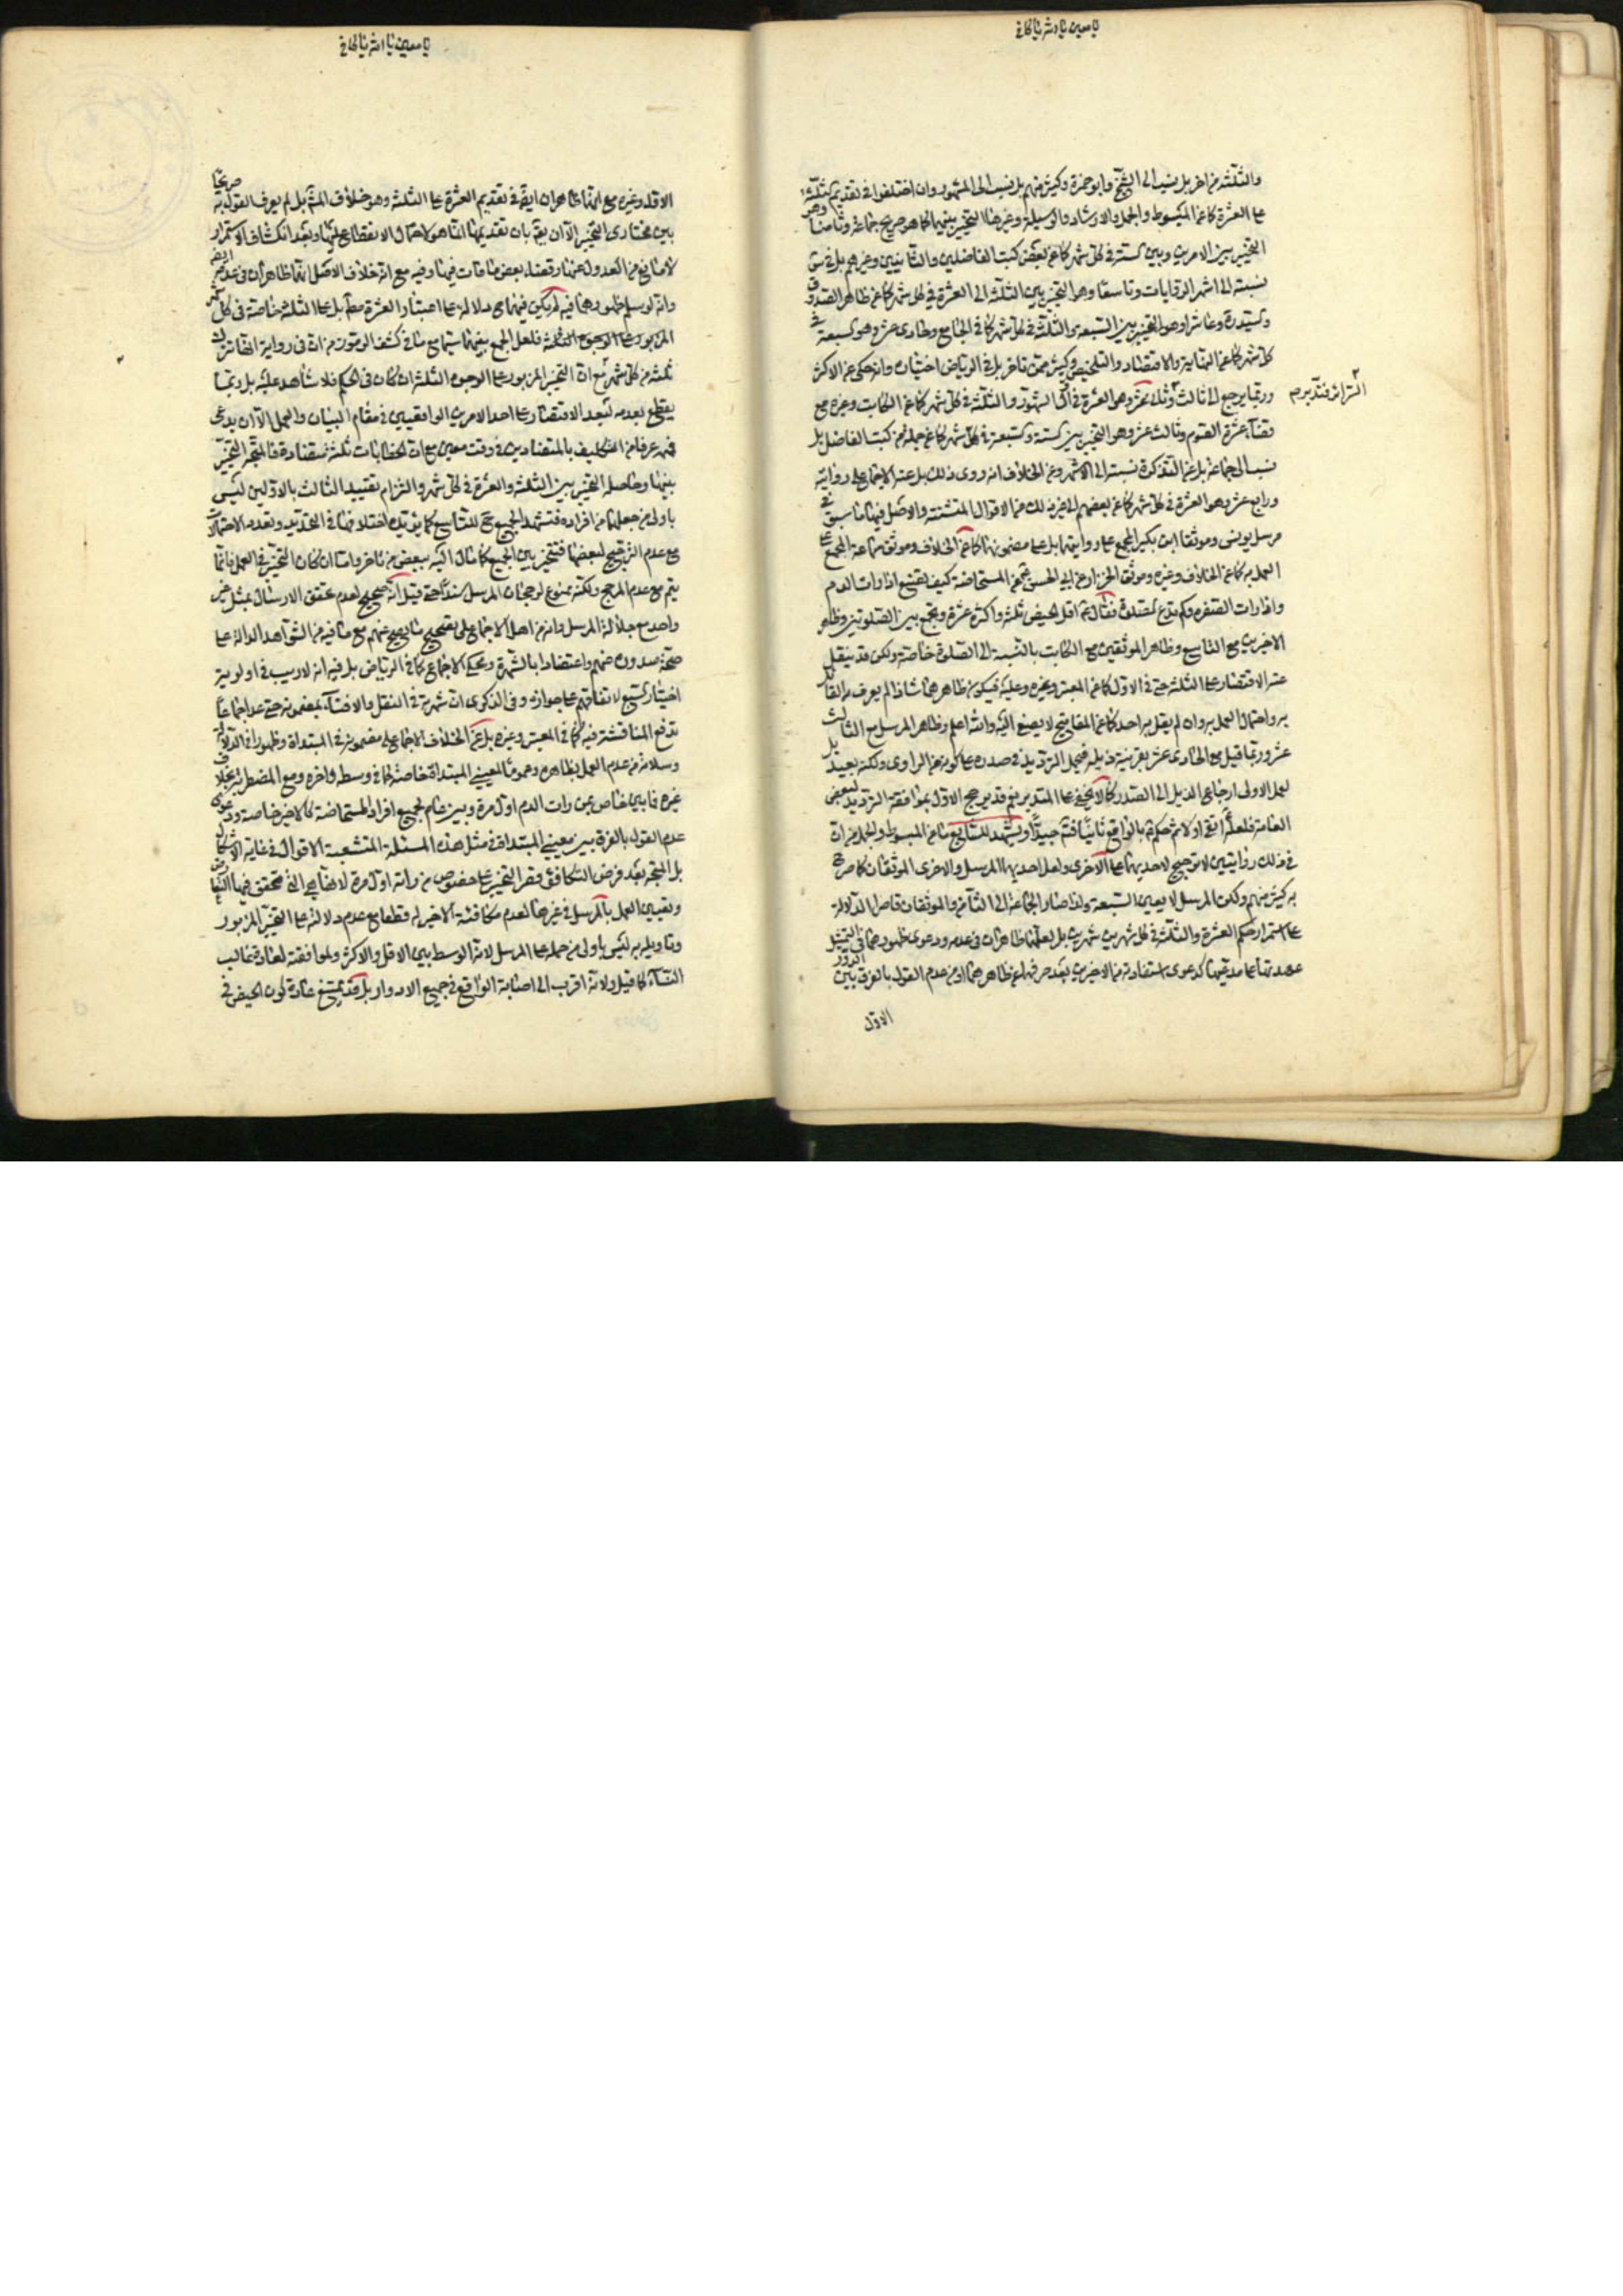 يا معين يا الله يا كافي
والثلثة من اخر بل ينسب الى الشيخ وابو حمزة وكثير منهم بل ينسب الى المشهور وان اختلفوا في تقديم الثلثة
على العشرة كما عن المبسوط والجمل والارشاد والوسيلة وغيرها التخيير بينهما كما هو صريح جماعة وثامنا وهو
التخيير بين الامرين وبين ستة في كل شهر كما عن بعض كتب الفاضلين والثانيين وغيرهم بل في
نسبته الى اشهر الروايات وتاسعا وهو التخيير بين الثلثة الى العشرة في كل شهر كما عن ظاهر الصدوق
والسيد وعاشرا وهو التخيير بين السبعة والثلثة في كل شهر كما في الجامع وحادى عشر وهو سبعة في
كل شهر كما عن النهاية والاقتصاد والتلخيص وكثير ممن تاخر بل في الرياض اختياره وانه حكى عن الاكثر
وربما يرجع الى ثالث وثانى عشر وهو العشرة في اول الشهور والثلثة في كل شهر كما عن الكاتب وغيره مع
السرائر فتدبر م
قضاء عشرة الصوم وثالث عشر وهو التخيير بين ستة وسبعة في كل شهر كما عن جملة من كتب الفاضل بل
نسب الى جماعة بل عن التذكرة نسبته الى الاشهر وعن الخلاف انه روى ذلك بل عنه الاجماع على روايته
ورابع عشر وهو العشرة في كل شهر كما عن بعضهم الى غير ذلك من الاقوال المتشتتة والاصل فيها ما سبق في
مرسل يونس وموثقا ابن بكير المجمع على روايتهما بل على مضمونهما كما عن الخلاف وموثق سماعة المجمع على
العمل به كما عن الخلاف وغيره وموثق الخزاز عن ابي الحسن ع في المستحاضة كيف تصنع اذا رات الدم
واذا رات الصفرة وكم تدع الصلوة فقال ع اقل الحيض ثلثة واكثره عشرة وتجمع بين الصلوتين وظاهر
الاخيرين مع التاسع وظاهر الموثقين مع الكاتب بالنسبة الى الصلوة خاصة ولكن قد ينقل
عنه الاقتصار على الثلثة حتى في الاول كما عن المعتبر وغيره وعليه فيكون ظاهرهما شاذا لم يعرف به القائل
به واحتمال العمل به وان لم يقل به احد كما عن المفاتيح لا يصغى اليه والله اعلم وظاهر المرسل مع الثالث
عشر وربما قيل مع الحادى عشر بقرينة ذيله فيحمل الترديد في صدره على كونه من الراوى ولكنه بعيد بل
لعل الاولى ارجاع الذيل الى الصدر كما لا يخفى على المتدبر نعم قد يرجح الاول بموافقة الترديد لبعض
العامة فلعله اتقى اولا ثم حكم بالواقع ثانيا فتم جيدا ويشهد للسابع ما عن المبسوط والجمل من ان
في ذلك روايتين لا ترجيح لاحديهما على الاخرى ولعل احديهما المرسل والاخرى الموثقان كما صرح
به كثير منهم ولكن المرسل لا يعين السبعة ولذا صار الجماعة الى الثامن والموثقان قاصرا الدلالة
على استمرار حكم العشرة والثلثة في كل شهرين شهرين بل لعلهما ظاهران في عدمه ودعوى ظهورهما في التمثيل
عهدتها على مدعيها كدعوى استفادته من الاخيرين بعد صرفهما عن ظاهرهما او من عدم القول بالفرق بين الدور
الاول
يا معين يا الله يا كافي
الاول وغيره مع انهما ظاهران ايضا في تقديم العشرة على الثلثة وهو خلاف المشهور بل لم يعرف القول به صريحا
بين مختارى التخيير الا ان يقال بان تقديمها انما هو لاحتمال الانقطاع عليها وبعد انكشاف الاستمرار
لا مانع من العدول عنها وقضاء بعض ما فات فيها وفيه مع انه خلاف الاصل انهما ظاهران في عدمه ايضا
وانه لو سلم ظهورهما فيه لم يكن فيهما دلالة على اعتبار العشرة معه بل على الثلثة خاصة في كل شهر
المزبور على الوجوه الثلثة فلعل الجمع بينهما سيما مع ما في كشف الرموز من ان في رواية انها تترك
ثلثة من كل شهر مع ان التخيير المزبور على الوجوه الثلثة ان كان في الحكم فلا شاهد عليه بل ربما
يقطع بعدمه لبعد الاقتصار على احد الامرين الواقعيين في مقام البيان والعمل الا ان يدعى
فهمه عرفا من التكليف بالمتضادين في وقت معين مع ان الخطابات ثلثة متضادة فالمتجه التخيير
بينها وحاصله التخيير بين الثلثة والعشرة في كل شهر والتزام تقييد الثالث بالاولين ليس
باولى من جعلهما من افراده فتشهد الجميع ح للتاسع كما يؤيده اختلافها في التحديد وتعدد الاحتمالات
مع عدم الترجيح لبعضها فتتخير بين الجميع كما مال اليه بعض من تاخر واما ان كان التخيير في العمل فانما
يتم مع عدم المرجح ولكنه ممنوع لرجحان المرسل سندا حتى قيل انه صحيح لعدم تحقق الارسال بمثل غير
واحد مع جلالة المرسل وانه من اهل الاجماع على تصحيح ما يصح عنهم مع ما فيه من الشواهد الدالة على
صحة صدوره عنهم واعتضادا بالشهرة ومحكي الاجماع كما في الرياض بل فيه انه لا ريب في اولوية
اختيار السبع لاتفاقهم على جوازه وفي الذكرى ان شهرته في النقل والافتاء بمضمونه حتى عد اجماعا
تدفع المناقشة فيه كما في المعتبر وغيره بل عن الخلاف الاجماع على مضمونه في المبتداة وظهورا في الدلالة
وسلامة من عدم العمل بظاهره وعموما لمعنيي المبتداة خاصة كما في وسطه واخره ومع المضطربة بخلاف
غيره فما بين خاص بمن رات الدم اول مرة وبين عام لجميع افراد المستحاضة كالاخير خاصة ودعوى
عدم القول بالفرق بين معنيي المبتداة في مثل هذه المسئلة المتشعبة الاقوال في غاية الاشكال
بل المتجه بعد فرض التكافؤ قصر التخيير على خصوص من راته اول مرة لانها هي التي تحقق فيها التعارض
وتعيين العمل بالمرسل في غيرها لعدم مكافئة الاخير له قطعا مع عدم دلالته على التخيير المزبور
وتاويله به ليس باولى من حمله على المرسل لانه الوسط بين الاقل والاكثر ولموافقته لعادة غالب
النساء كما قيل ولانه اقرب الى اصابة الواقع في جميع الادوار بل قد يمتنع عادة كون الحيض في